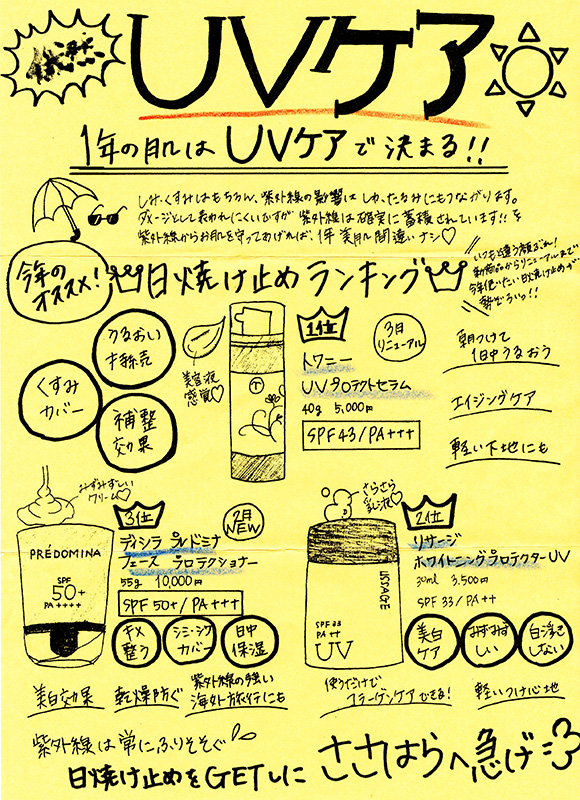 UVケア
1年の肌はUVケアで決まる!!
しみ、くすみはもちろん、紫外線の影響はしわ、たるみにもつながります。
ダメージとして表われにくいですが紫外線は確実に蓄積されています!!
紫外線からお肌を守ってあげれば、1年美肌間違いナシ♡
今年の
オススメ!
日焼け止めランキング
いつもと違う顔ぶれ!
新商品からリニューアルまで
今年使いたい日焼け止めが
勢ぞろいっ!!
うるおい
持続
くすみ
カバー
補整
効果
美容液
感覚♡
T
1位
3月
リニューアル
トワニー
UVプロテクトセラム
40g 5,000円
SPF43/PA+++
朝つけて
1日中うるおう
エイジングケア
軽い下地にも
みずみずしい
クリーム♡
PRÉDOMINA
SPF
50+
PA++++
3位
2月
NEW
ディシラ プレドミナ
フェース プロテクショナー
55g 10,000円
SPF50+/PA+++
キメ
整う
シミ・シワ
カバー
日中
保湿
美白効果
乾燥防ぐ
紫外線の強い
海外旅行にも
さらさら
乳液♡
SPF33
PA++
UV
2位
リサージ
ホワイトニングプロテクターUV
30ml 3,500円
SPF33/PA++
美白
ケア
みずみず
しい
白浮き
しない
使うだけで
コラーゲンケアできる!
軽いつけ心地
紫外線は常にふりそそぐ
日焼け止めをGETしに ささはらへ急げ